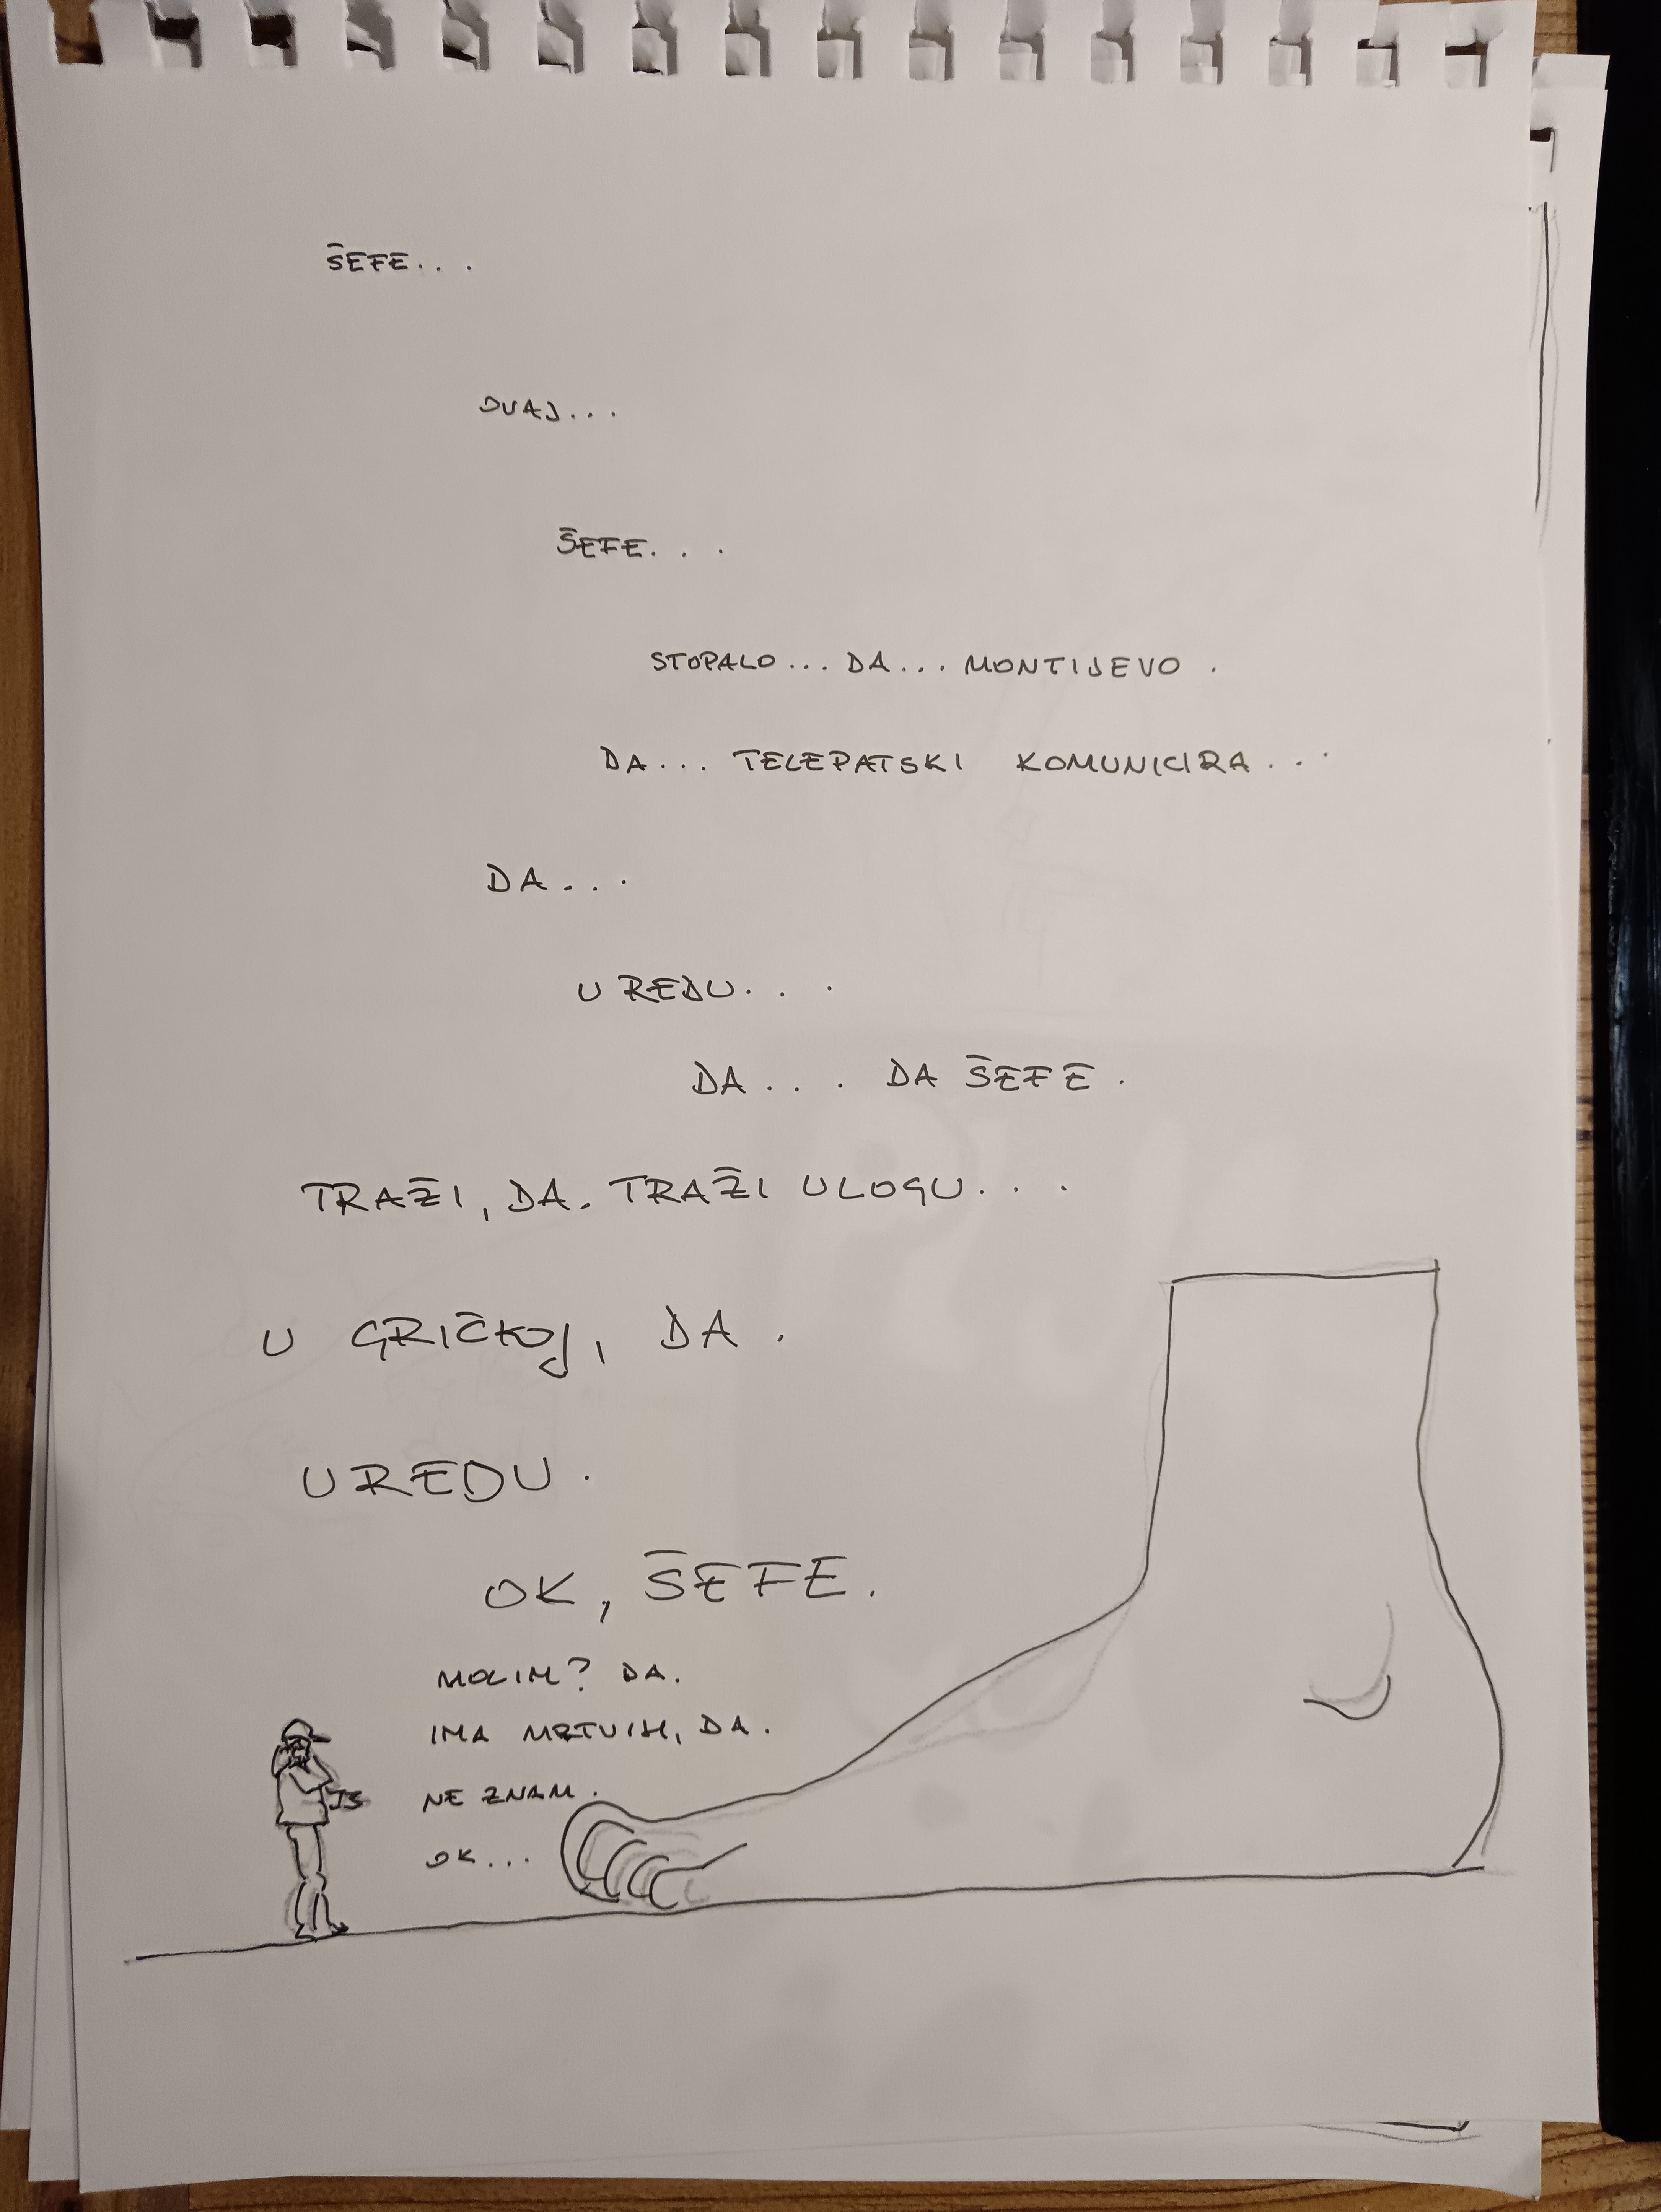 ŠEFE...
OVAJ...
ŠEFE...
STOPALO... DA... MONTIJEVO.
DA... TELEPATSKI KOMUNICIRA...
DA...
U REDU...
DA... DA ŠEFE.
TRAŽI, DA. TRAŽI ULOGU...
U GRIČKOJ, DA.
U REDU.
OK, ŠEFE.
MOLIM? DA.
IMA MRTVIH, DA.
NE ZNAM.
OK...